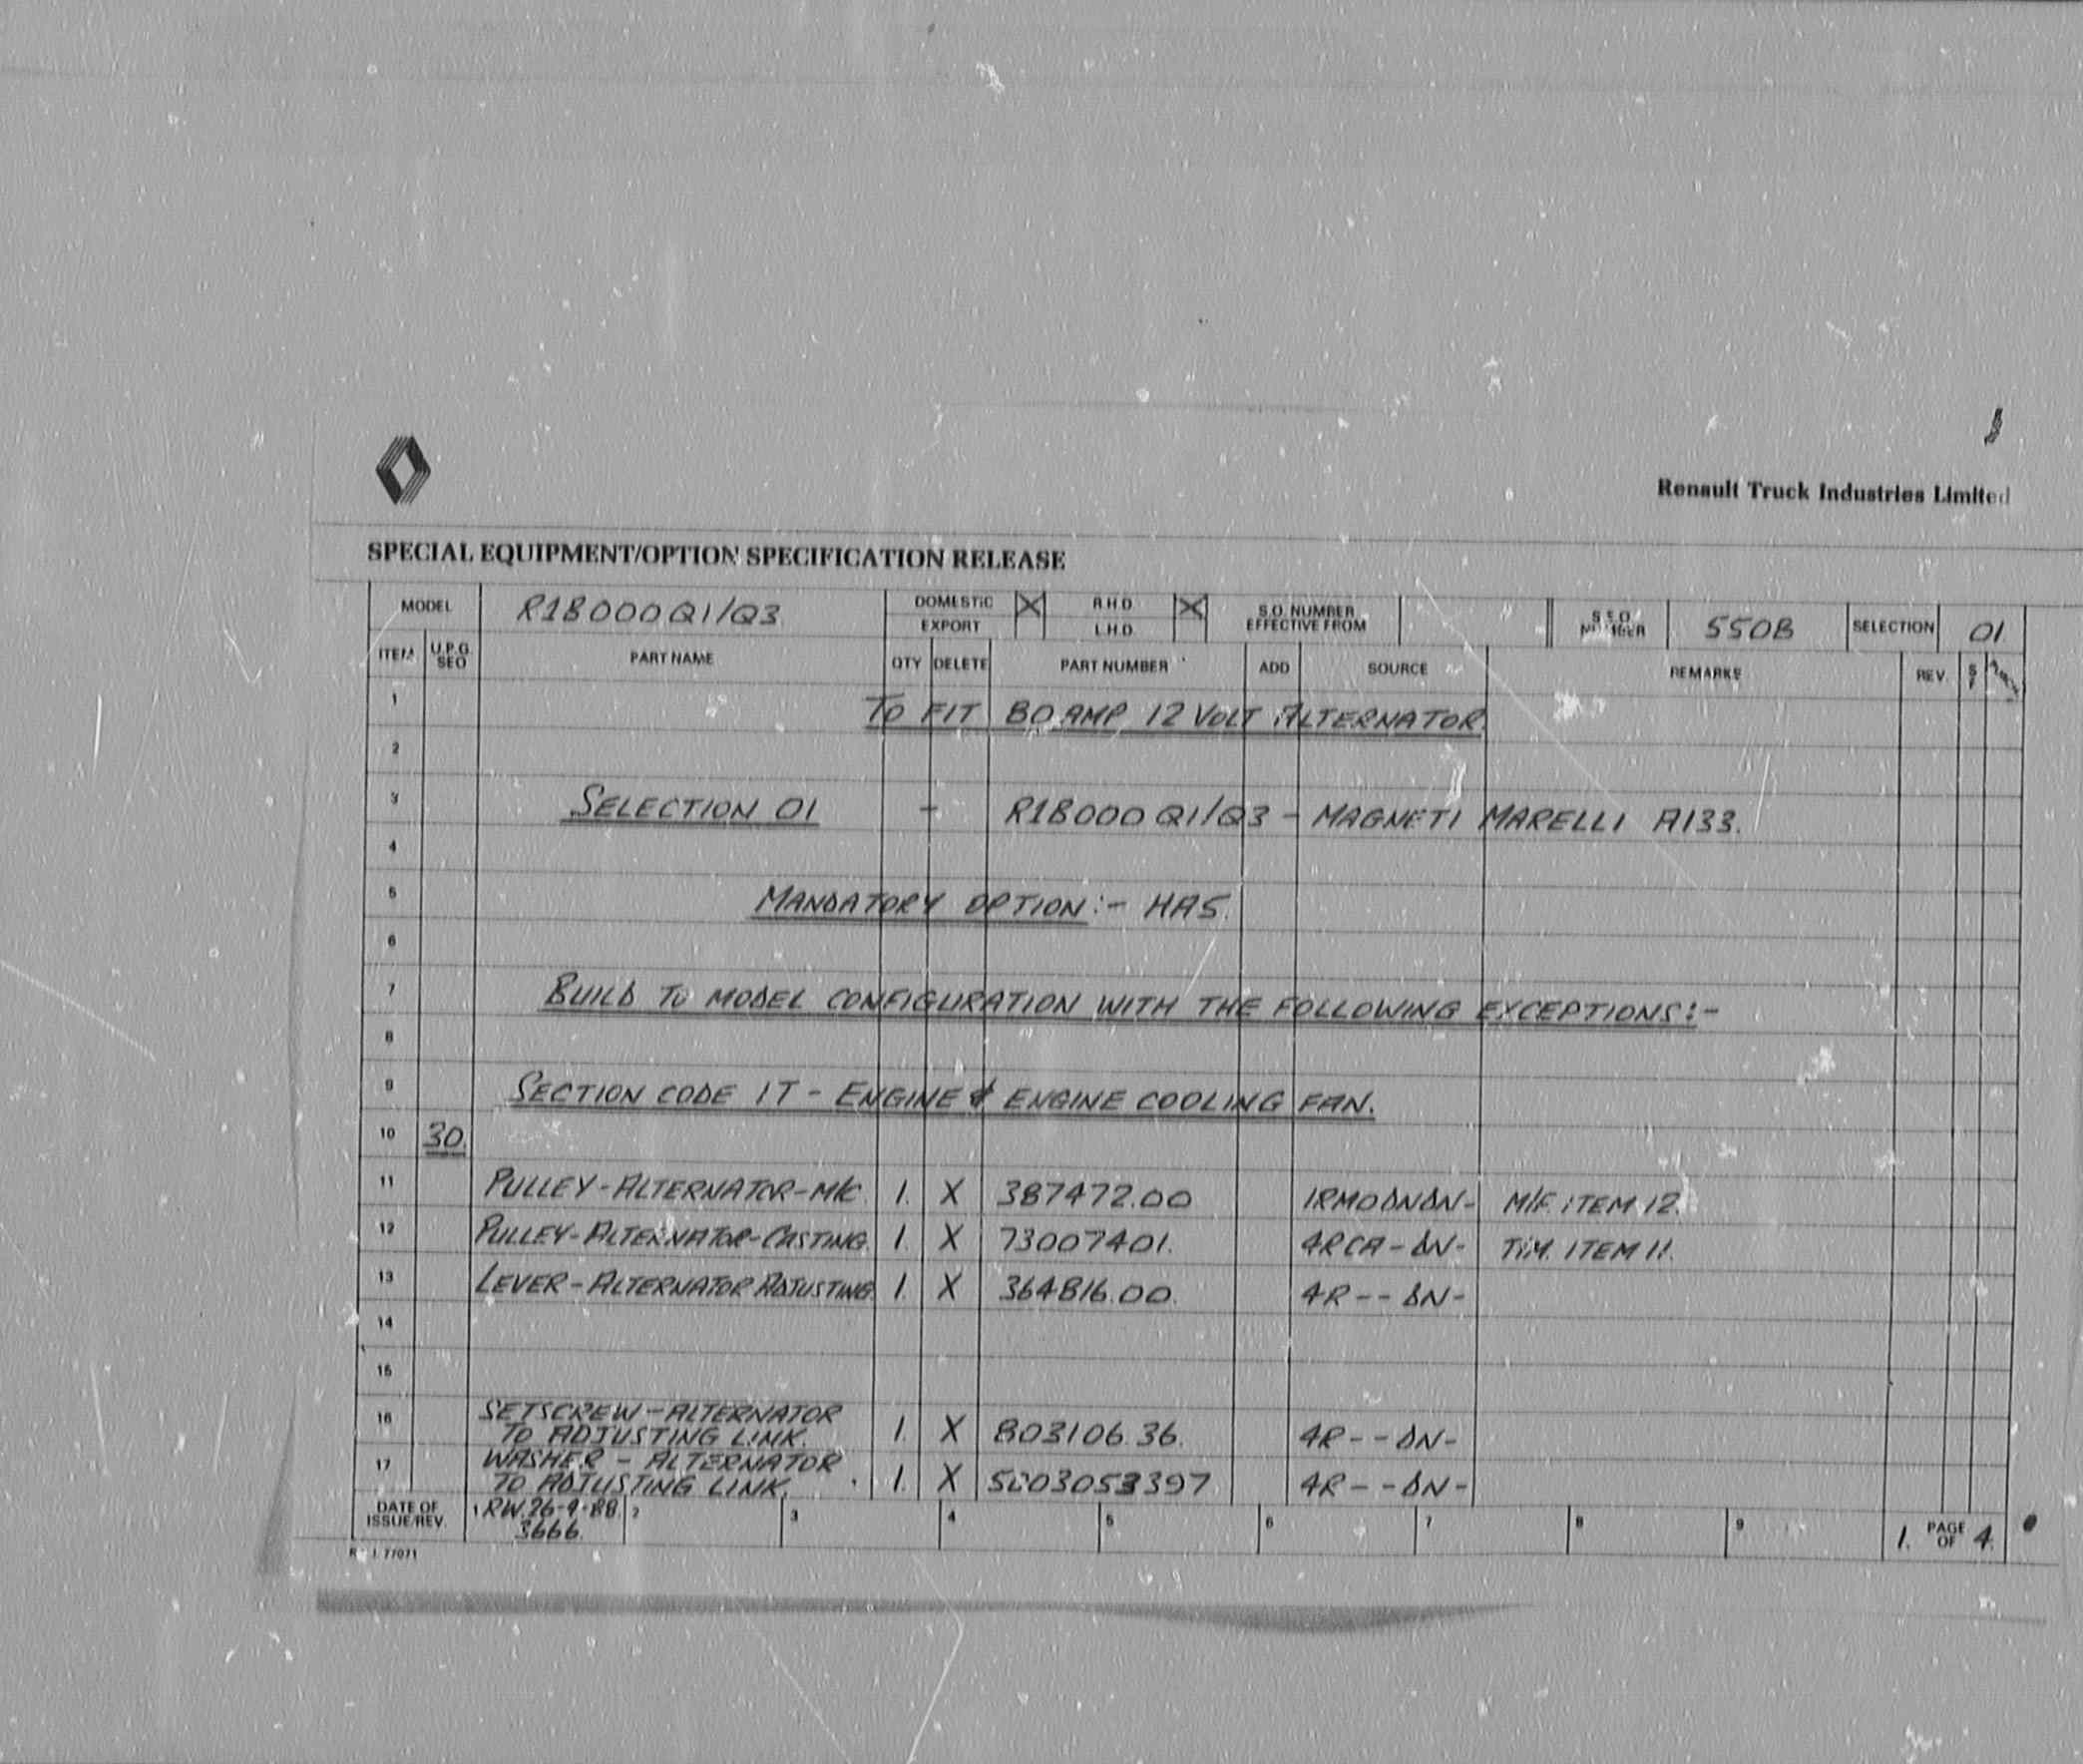 Renault Truck Industries Limited
SPECIAL EQUIPMENT/OPTION SPECIFICATION RELEASE
MODEL R18000Q1/Q3 DOMESTIC X R.H.D. X S.O. NUMBER EFFECTIVE FROM S.S.O. NUMBER 5508 SELECTION 01.
EXPORT L.H.D.
ITEM U.P.G. SEQ PART NAME QTY DELETE PART NUMBER ADD SOURCE REMARKS REV.
1 TO FIT 80 AMP 12 VOLT ALTERNATOR.
2
3 SELECTION 01 - R18000Q1/Q3 - MAGNETI MARELLI A133.
4
5 MANDATORY OPTION:- HA5.
6
7 BUILD TO MODEL CONFIGURATION WITH THE FOLLOWING EXCEPTIONS:-
8
9 SECTION CODE 1T - ENGINE & ENGINE COOLING FAN.
10 30.
11 PULLEY-ALTERNATOR-M/C. 1. X 387472.00 M/F. ITEM 12.
12 PULLEY-ALTERNATOR-CASTING. 1. X 73007401. T/M. ITEM 11.
13 LEVER-ALTERNATOR ADJUSTING. 1. X 364816.00.
14
15
16 SETSCREW-ALTERNATOR
TO ADJUSTING LINK. 1. X 803106.36.
17 WASHER - ALTERNATOR
TO ADJUSTING LINK. 1. X 5003053397
DATE OF ISSUE/REV. 1 RW.26-9-88. 2 3 4 5 6 7 8 9 1. PAGE OF 4.
3666.
77071